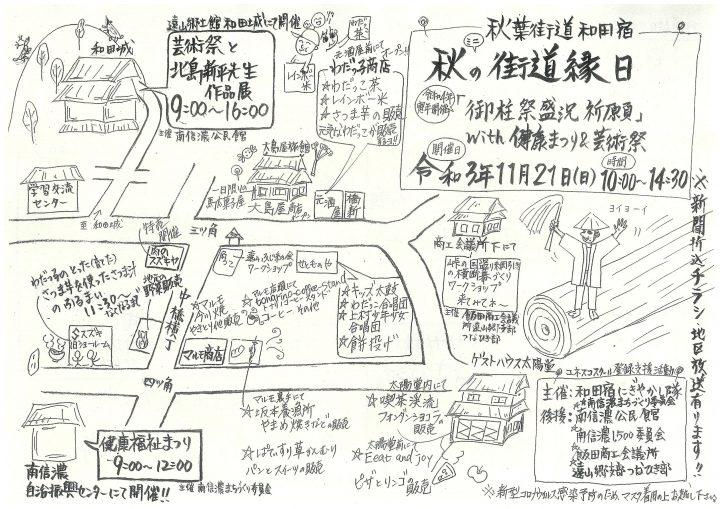 秋葉街道 和田宿
秋のミニ街道縁日
令和4年寅年開催
「御柱祭盛況祈願」
with 健康まつり&芸術祭
開催日
時間
令和3年11月21日(日) 10:00～14:30
※新聞折込チラシ、地区放送有ります!!
遠山郷土館 和田城にて開催
和田城
芸術祭と
北島新平先生
作品展
9:00～16:00
主催 南信濃公民館
わだっ茶
レインボー米
元酒屋前にて
オープン!
わだっ子商店
☆わだっこ茶
☆レインボー米
☆さつま芋の販売
大島屋旅館
一日限りの
駄菓子屋
大島屋商店
元酒屋
橋新
学習交流
センター
至 和田城
三ツ角
特売
開催
肉の
スズキヤ
地元の
野菜販売
中橋横丁
わだっ子のとった(育てた)
さつま芋を使ったさつま汁
のふるまい
11:30～
なくなるまで
スズキ
自ショールーム
角っこ
ワークショップ
せんものや
☆マルモ店頭にて
bongrino-coffee-stand
コーヒースタンド
コーヒー その他
☆マルモ
今川焼
やきとり他販売
マルモ商店
☆キッズ太鼓
☆わだっこ合唱団
☆上村少年少女
合唱団
☆餅投げ
商工会議所下にて
峠の国盗り綱引きの
横断幕づくり
ワークショップ
来てみてネ～
主催 飯田商工会議
所遠山郷支部
つなひき部
ヨイヨーイ
四ツ角
マルモ裏手にて
☆坂本養漁所
やまめ焼きなどの販売
☆ぱてぃすり草かんむり
パンとスイーツの販売
ゲストハウス太陽堂
太陽堂内にて
☆喫茶渓流
フォンダンショコラ
販売
太陽堂前にて
☆Eeat and joy
ピザとリンゴの
販売
健康福祉まつり
9:00～12:00
南信濃
自治振興センターにて開催!!
主催 南信濃まちづくり委員会
@ユネスコスクール登録支援活動@
主催:和田宿にぎやかし隊
☆南信濃まちづくり委員会
後援:南信濃公民館
☆南信濃1,500委員会
☆飯田商工会議所
遠山郷支部つなひき部
※新型コロナウィルス感染予防のため、マスク着用の上お越し下さい